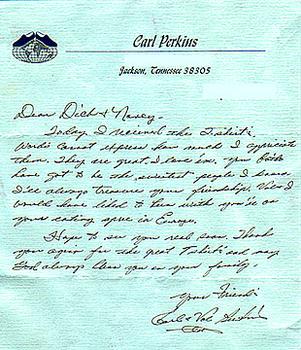 Carl Perkins
Jackson, Tennessee 38305
Dear Dick & Nancy,
Today I received the T-shirts.
Words cannot express how much I appreciate
them. They are great, I love em. You both
have got to be the sweetest people I know
I'll always treasure your friendship. Val & I
would have liked to been with you're on
your eating spree in Europe.
Hope to see you real soon. Thank
you again for the great T-shirts and may
God always bless you and your family.
Your Friends
Carl & Val Perkins